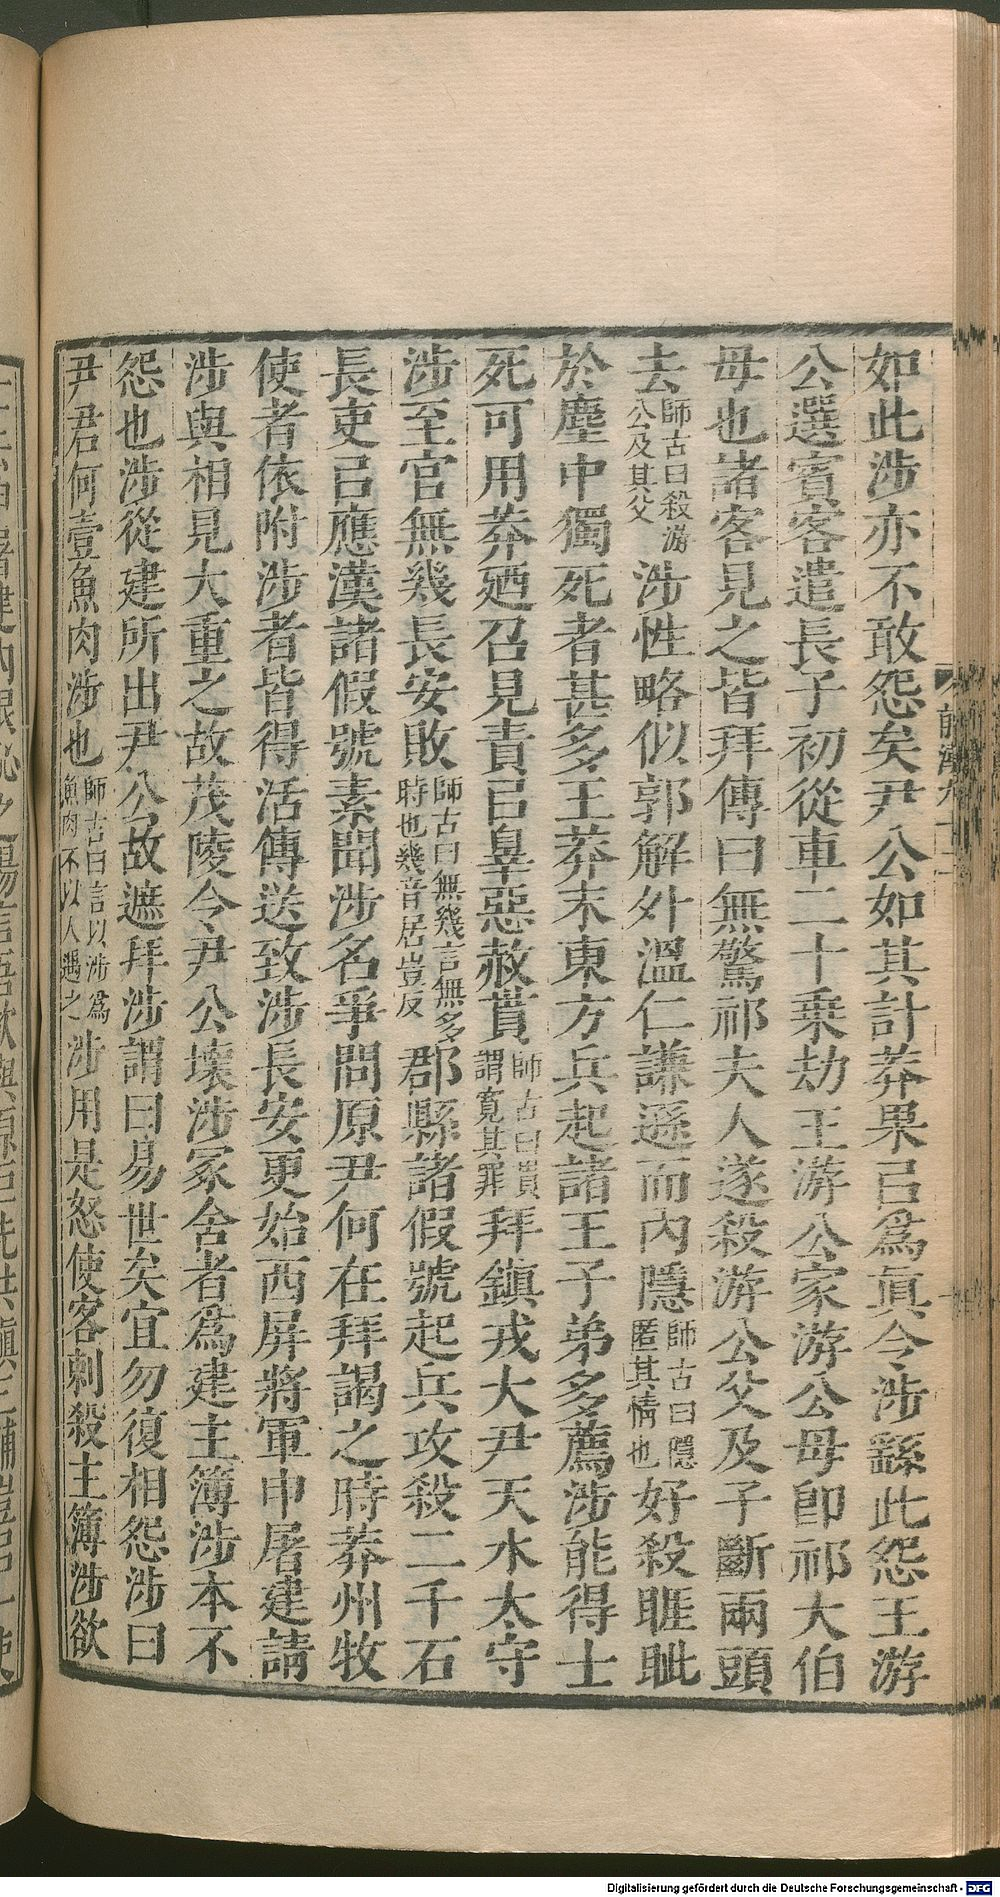 如此涉亦不敢怨矣尹公如其計莽果㠯爲眞令涉繇此怨王游
公選賓客遣長子初從車二十乗劫王游公家游公母卽祁大伯
母也諸客見之皆拜傳曰無驚祁夫人遂殺游公父及子斷兩頭
去師古曰殺游公及其父涉性略似郭解外溫仁謙遜而內隱師古曰隱匿其情也好殺睚眦
於塵中獨死者甚多王莽末東方兵起諸王子弟多薦涉能得士
死可用莽廼召見責㠯辠惡赦貰師古曰貰謂寬其罪拜鎭戎大尹天水太守
涉至官無幾長安敗師古曰無幾言無多時也幾音居豈反郡縣諸假號起兵攻殺二千石
長吏㠯應漢諸假號素聞涉名爭問原尹何在拜謁之時莽州牧
使者依附涉者皆得活傳送致涉長安更始西屏將軍申屠建請
涉與相見大重之故茂陵令尹公壞涉冢舍者爲建主簿涉本不
怨也涉從建所出尹公故遮拜涉謂曰易世矣宜勿復相怨涉曰
尹君何壹魚肉涉也師古曰言以涉爲魚肉不以人遇之涉用是怒使客刺殺主簿涉欲
Digitalisierung gefördert durch die Deutsche Forschungsgemeinschaft - DFG